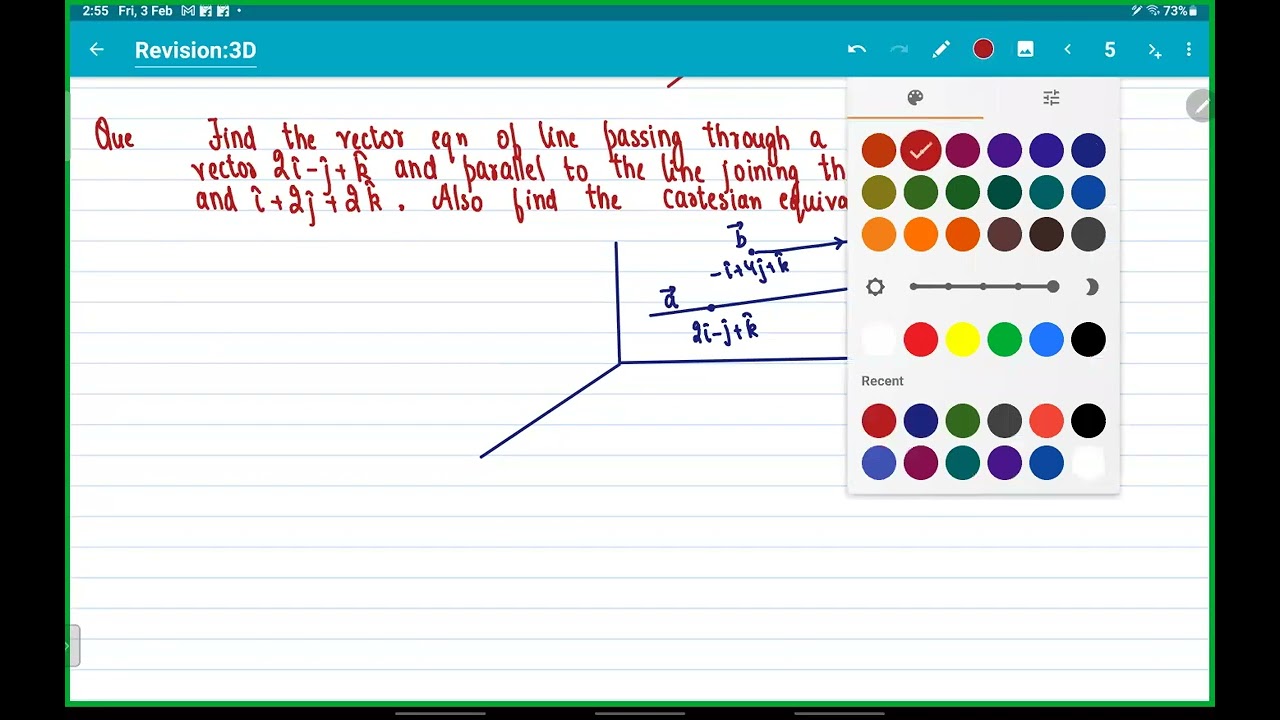 2:55 Fri, 3 Feb
73%
Revision:3D
5
Que Find the vector eqn of line passing through a
vector 2î-ĵ+k̂ and parallel to the line joining th
and î+2ĵ+2k̂. Also find the cartesian equiva
b⃗
-î+4ĵ+k̂
a⃗
2î-ĵ+k̂
Recent